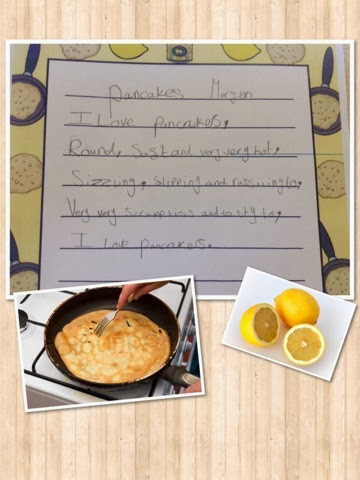 pancakes Morgan
I Love pancakes,
Round, Soft and very very hot,
Sizzling, slipping and to,
Very very and tasty to,
I love pancakes.